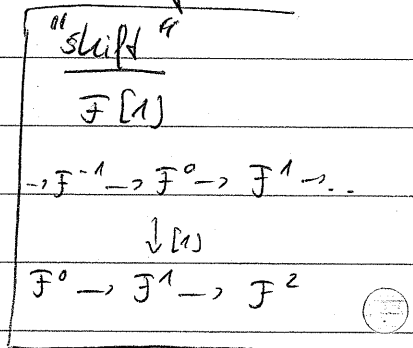 "shift"
F[1]
→ F⁻¹ → F⁰ → F¹ → ..
↓ [1]
F⁰ → F¹ → F²